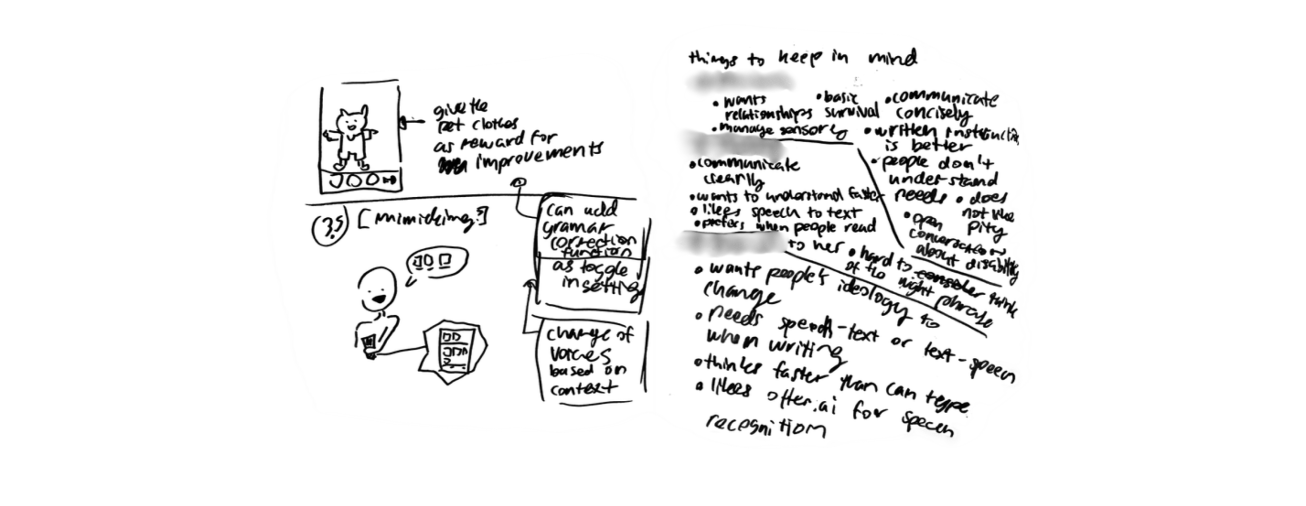 give the
pet clothes
as reward for
improvements
3.5 [mimicking?]
can add
gramar
correction
function
as toggle
in setting
change of
voices
based on
context
things to keep in mind
• wants
relationships
• manage sensory
• basic
survival
• communicate
concisely
• written
is better
• people don't
understand
needs
• does
not like
pity
• open
conversation
about disability
• communicate
clearly
• wants to understand faster
• likes speech to text
• prefers when people read
to her
• hard to think
of the right phrase
• wants people's ideology to
change
• needs speech-text or text-speech
when writing
• thinks faster than can type
• likes otter.ai for speech
recognition